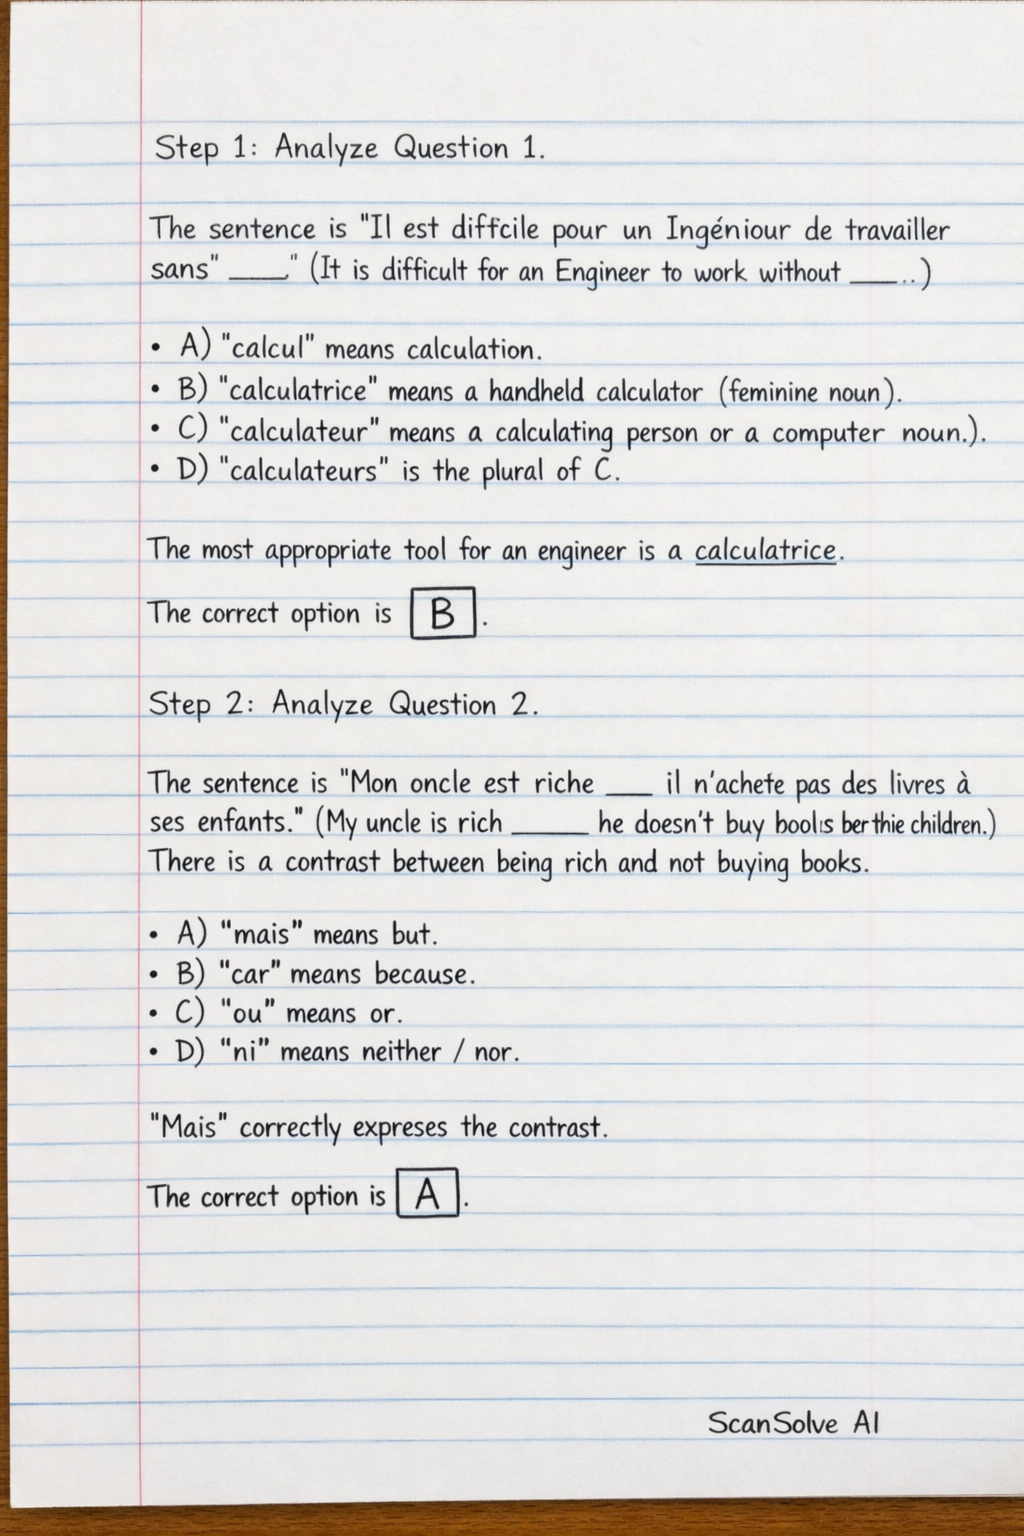 Step 1: Analyze Question 1.
The sentence is "Il est diffcile pour un Ingéniour de travailler
sans" ____" (It is difficult for an Engineer to work without ____..)
• A) "calcul" means calculation.
• B) "calculatrice" means a handheld calculator (feminine noun).
• C) "calculateur" means a calculating person or a computer noun.).
• D) "calculateurs" is the plural of C.
The most appropriate tool for an engineer is a calculatrice.
The correct option is B.
Step 2: Analyze Question 2.
The sentence is "Mon oncle est riche ___ il n'achete pas des livres à
ses enfants." (My uncle is rich _____ he doesn't buy children.)
There is a contrast between being rich and not buying books.
• A) "mais" means but.
• B) "car" means because.
• C) "ou" means or.
• D) "ni" means neither / nor.
"Mais" correctly expreses the contrast.
The correct option is A.
ScanSolve AI